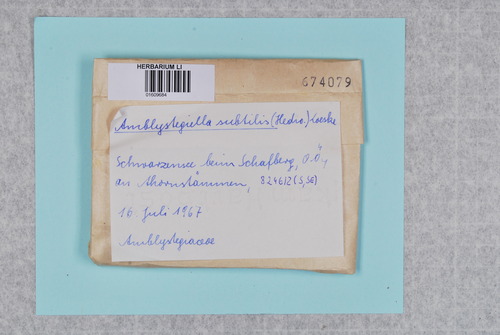 HERBARIUM LI
01609684
674079
Amblystegiella subtilis (Hedw.) Loeske
Schwarzensee beim Schafberg, O.Ö.,
an Ahornstämmen, 8246/2 (S, SE)
16. Juli 1967
Amblystegiaceae